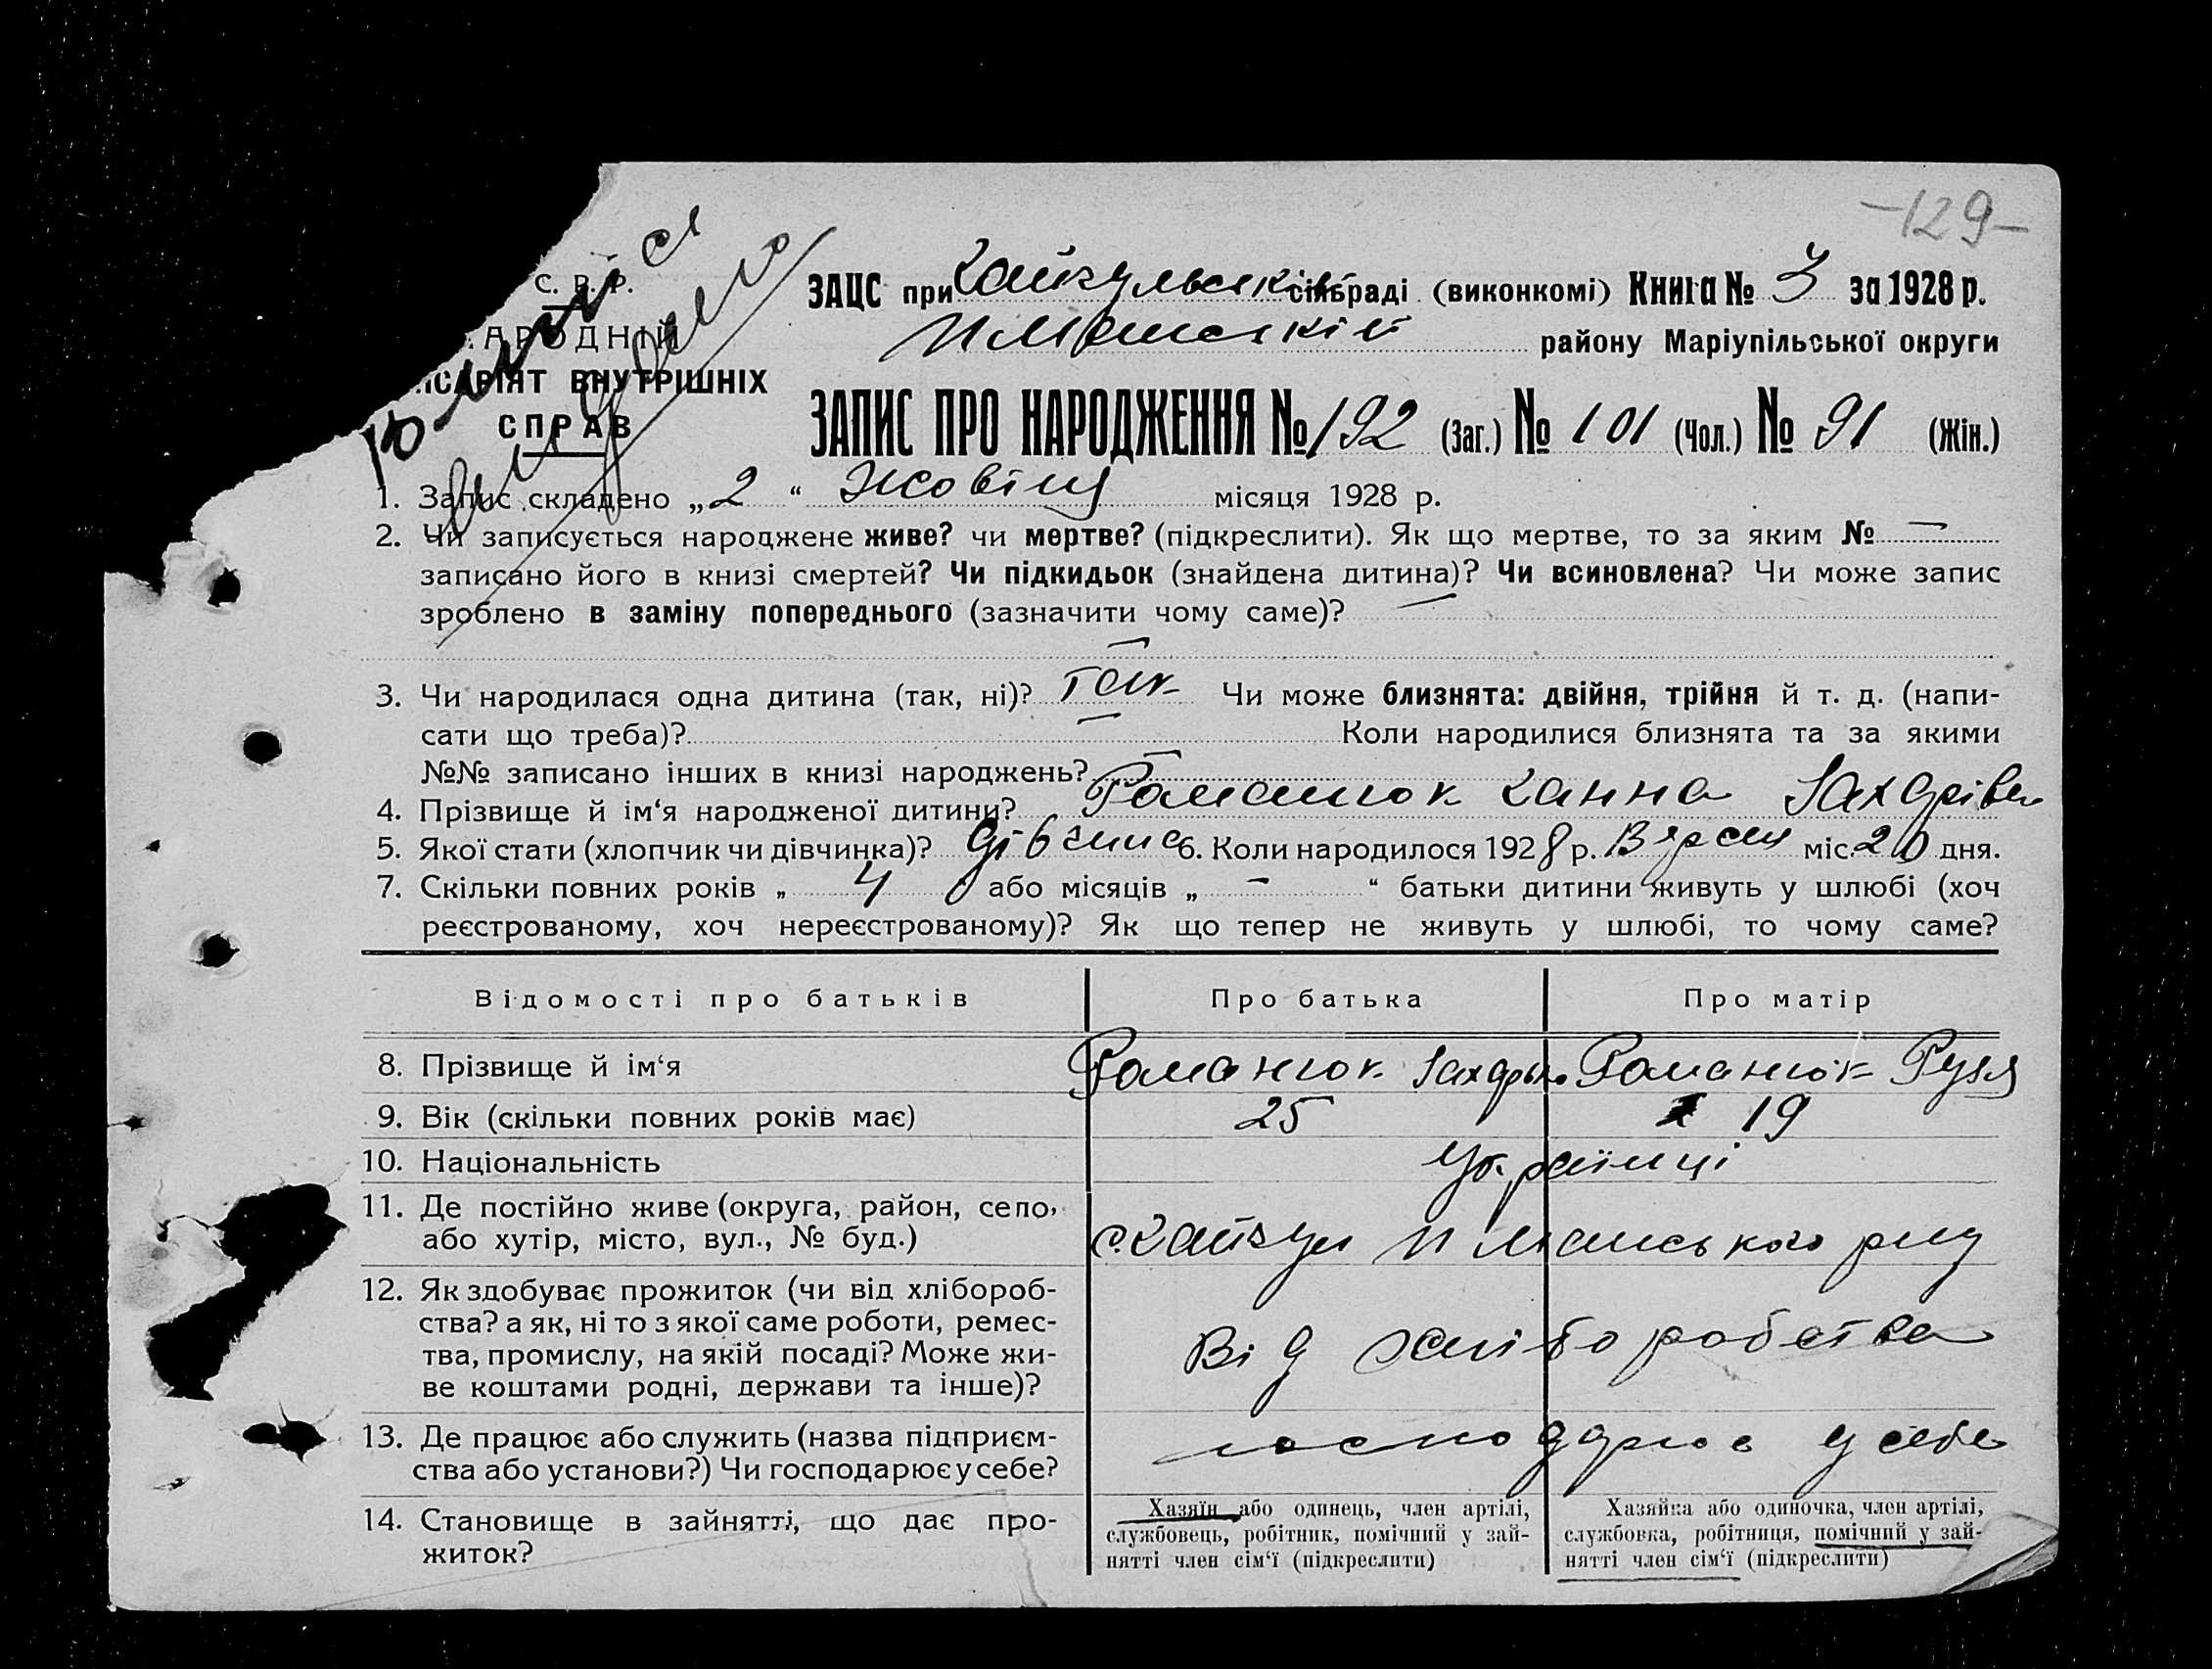 -129-
С. Р. Р.
АРОДНІЙ
ІСАРІЯТ ВНУТРІШНІХ
СПРАВ
ЗАЦС при сільраді (виконкомі) Книга № 3 за 1928 р.
району Маріупільської округи
ЗАПИС ПРО НАРОДЖЕННЯ № 192 (Заг.) № 101 (Чол.) № 91 (Жін.)
1. Запис складено „ 2 “ Жовтня місяця 1928 р.
2. Чи записується народжене живе? чи мертве? (підкреслити). Як що мертве, то за яким № —
записано його в книзі смертей? Чи підкидьок (знайдена дитина)? Чи всиновлена? Чи може запис
зроблено в заміну попереднього (зазначити чому саме)? —
—
3. Чи народилася одна дитина (так, ні)? Так Чи може близнята: двійня, трійня й т. д. (напи-
сати що треба)? — Коли народилися близнята та за якими
№№ записано інших в книзі народжень? —
4. Прізвище й ім‘я народженої дитини? Романюк Ганна Захарівна
5. Якої стати (хлопчик чи дівчинка)? дівчина 6. Коли народилося 1928 р. Вересня міс. 20 дня.
7. Скільки повних років „ 4 або місяців „ - “ батьки дитини живуть у шлюбі (хоч
реєстрованому, хоч нереєстрованому)? Як що тепер не живуть у шлюбі, то чому саме?
Відомості про батьків Про батька Про матір
8. Прізвище й ім‘я Романюк Захарько Романюк
9. Вік (скільки повних років має) 25 19
10. Національність Українці
11. Де постійно живе (округа, район, село,
або хутір, місто, вул., № буд.)
с. району
12. Як здобуває прожиток (чи від хлібороб-
ства? а як, ні то з якої саме роботи, ремес-
тва, промислу, на якій посаді? Може жи-
ве коштами родні, держави та інше)?
Від хліборобства
13. Де працює або служить (назва підприєм-
ства або установи?) Чи господарює у себе?
господарює у себе
14. Становище в зайнятті, що дає про-
житок?
Хазяїн або одинець, член артілі,
службовець, робітник, помічний у зай-
нятті член сім‘ї (підкреслити)
Хазяйка або одиночка, член артілі,
службовка, робітниця, помічний у зай-
нятті член сім‘ї (підкреслити)